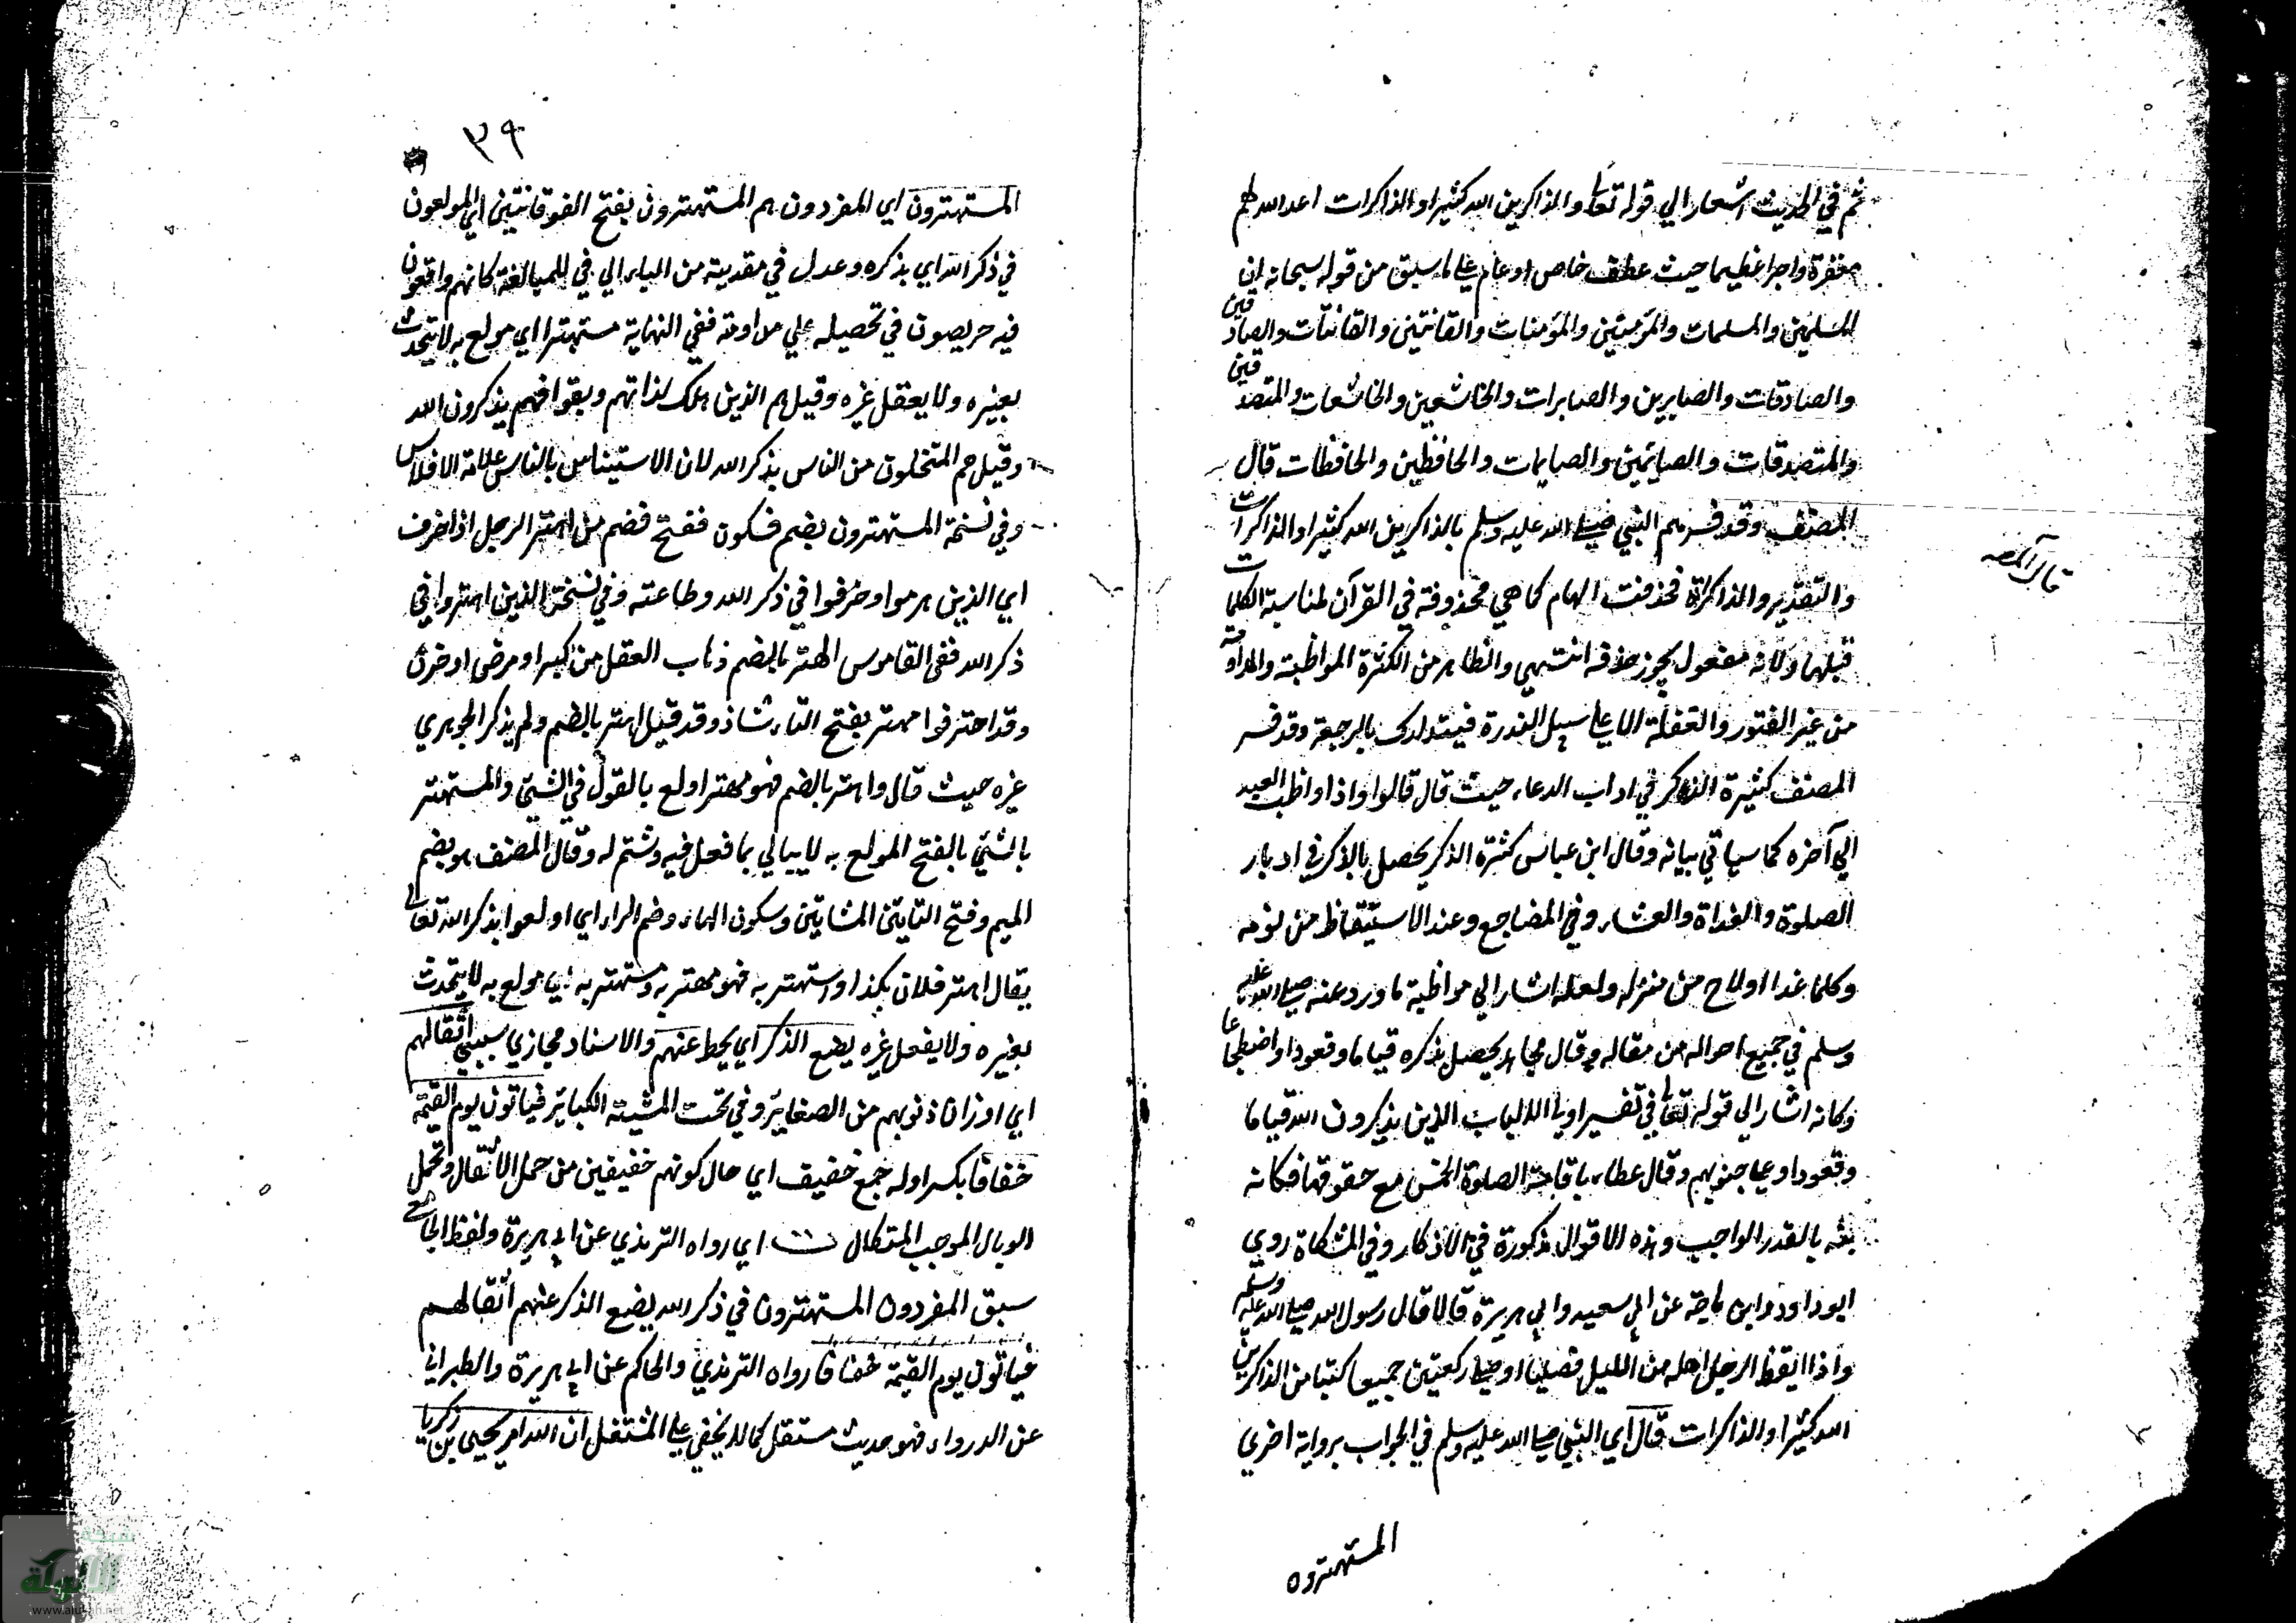 ثم في الحديث اشعار الي قوله تعالى والذاكرين الله كثيرا والذاكرات اعد الله لهم
مغفرة واجرا عظيما حيث عطف خاص او عام على ما سبق من قوله سبحانه ان
المسلمين والمسلمات والمؤمنين والمؤمنات والقانتين والقانتات والصادقين
والصادقات والصابرين والصابرات والخاشعين والخاشعات والمتصدقين
والمتصدقات والصايمين والصايمات والحافظين والحافظات قال
المصنف وقد فسرهم النبي صلى الله عليه وسلم بالذاكرين الله كثيرا والذاكرات
والتقدير والذاكراته فحذفت الهاء كما هي محذوفة في القرآن لمناسبة الكلمات
قبلها ولانه مفعول يجوز حذفه انتهى والظاهر من الكثرة المواظبة والمداومة
من غير الفتور والغفلة الا على سبيل الندرة فيتدارك بالرجعة وقد فسر
المصنف كثيرة الذكر في اداب الدعاء حيث قال قالوا واذا واظب العبد
الي آخره كما سياتي بيانه وقال ابن عباس كثرة الذكر يحصل بالذكر في ادبار
الصلوة والغداة والعشاء وفي المضاجع وعند الاستيقاظ من نومه
وكلما غدا او راح من منزله ولعله اشار الي مواظبة ما ورد عنه صلى الله عليه
وسلم في جميع احواله من مقاله وقال مجاهد يحصل بذكره قياما وقعودا واضطجاعا
وكانه اشار الي قوله تعالى في تفسير اولي الالباب الذين يذكرون الله قياما
وقعودا وعلى جنوبهم وقال عطاء باقامة الصلوة الخمس مع حقوقها فكانه
بالقدر الواجب وهذه الاقوال مذكورة في الاذكار وفي المشكاة روي
ابو داود وابن ماجة عن ابي سعيد وابي هريرة قالا قال رسول الله صلى الله عليه وسلم
واذا ايقظ الرجل اهله من الليل فصليا او صلى ركعتين جميعا كتبا من الذاكرين
الله كثيرا والذاكرات قال اي النبي صلى الله عليه وسلم في الجواب برواية اخري
المستهترون
٣٩
المستهترون اي المفردون هم المستهترون بفتح الفوقانيتين اي المولعون
في ذكر الله اي بذكره وعدل في مقدمته من الباء الي في للمبالغة كانهم واقعون
فيه حريصون في تحصيله علي مداومته ففي النهاية مستهترا اي مولع به لا يتحدث
بغيره ولا يعقل غيره وقيل هم الذين هلك لذاتهم وبقوا فهم يذكرون الله
وقيل هم المتخلون من الناس بذكر الله لان الاستيناس بالناس علامة الافلاس
وفي نسخة المستهترون بضم فسكون ففتح فضم من اهتر الرجل اذا خرف
اي الذين هرموا وخرفوا في ذكر الله وطاعته وفي نسخة الذين اهتروا في
ذكر الله ففي القاموس الهتر بالضم ذهاب العقل من كبر او مرض او خزن
وقد اهتر فهو مهتر بفتح التاء شاذ وقد قيل اهتر بالضم ولم يذكر الجوهري
غيره حيث قال واهتر بالضم فهو مهتر اولع بالقول في الشيء والمستهتر
بالشيء بالفتح المولع به لا يبالي بما فعل فيه وشتم له وقال المصنف هو بضم
الميم وفتح التايين المثناتين وسكون الهاء وضم الراء اي اولعوا بذكر الله تعالى
يقال اهتر فلان بكذا واستهتر به فهو مهتر به ومستهتر به اي مولع به لا يتحدث
بغيره ولا يفعل غيره يضع الذكر اي يحط عنهم والاسناد مجازي سببي اثقالهم
اي اوزان ذنوبهم من الصغاير وفي تحت المشية الكباير فياتون يوم القيمة
خفافا بكسر اوله جمع خفيف اي حال كونهم خفيفين من حمل الاثقال وتحمل
الوبال الموجب للتكال ت اي رواه الترمذي عن ابي هريرة ولفظ الجامع
سبق المفردون المستهترون في ذكر الله يضع الذكر عنهم اثقالهم
فياتون يوم القيمة خفافا رواه الترمذي والحاكم عن ابي هريرة والطبراني
عن الدرداء فهو حديث مستقل كما لا يخفي على المشتغل ان الله امر يحيى بن زكريا